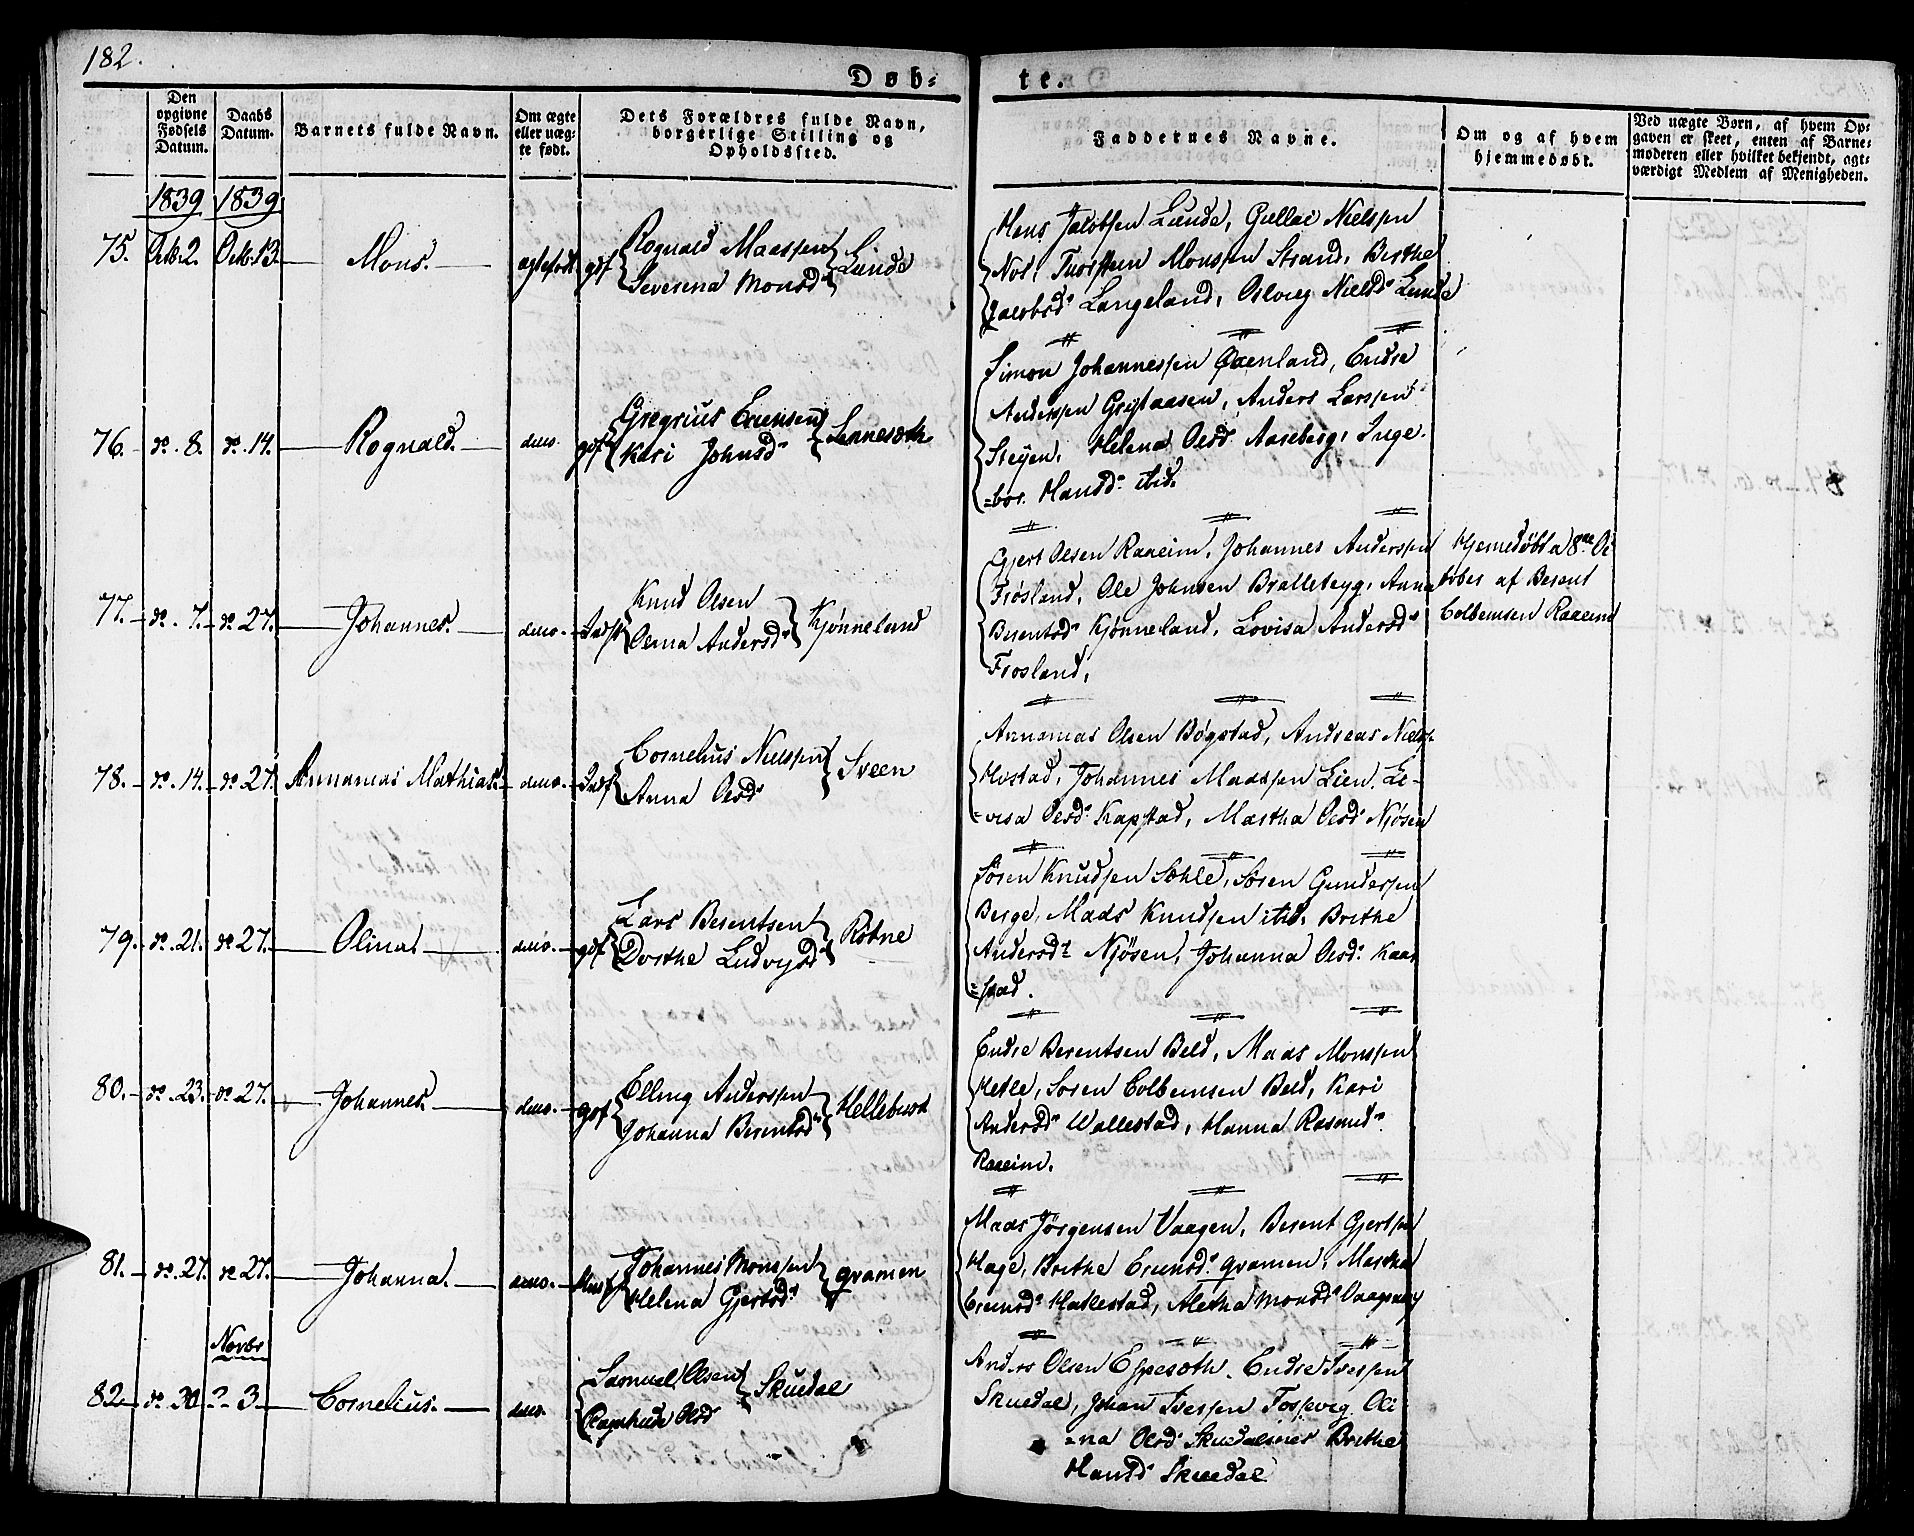 182.
Døb-
te.
Den opgivne Fødsels Datum.
Daabs Datum.
Barnets fulde Navn.
Om ægte eller uægte født.
Dets Forældres fulde Navn, borgerlige Stilling og Opholdssted.
Faddernes Navne.
Om og af hvem hjemmedøbt.
Ved uægte Børn, af hvem Op-
gaven er skeet, enten af Barne-
moderen eller hvilket bekjendt, agt-
værdigt Medlem af Menigheden.
1839 1839
75. Octb. 2. Octb. 13. Mons. ægtefødt gdf Rognald Maassen
Severena Monsd. Lunde
Mons Jacobsen Lunde, Gullac Nielssen
Nos, Tuorsteen Monssen Strand, Berthe
Jacobsd. Langeland, Oloug Nielsd. Lunde
76. do. 8. do. 14. Rognald. dito. gdf Gregrius Erensen
Kari Johnsd. Lennesoth
Simon Johannessen Øxenland, Endre
Anderssen Grystaasen, Anders Larssen
Steyen, Helena Olsd. Aareberg, Inge-
=bor. Hansd. ibid.
77. do. 7. do. 27. Johannes. dito. Indst Knud Olsen
Olena Andersd. Kjønneland
Gjert Olsen Raaeim, Johannes Anderssen
Frøsland, Ole Johnsen Bratteteyg, Anna
Berentsd. Kjønneland, Lovisa Andersd.
Frosland,
Hjemedøbt a 8de Oc
tober af Berent
Colbensen Raaeim
78. do. 14. do. 27. Annanias Mathias. dito. Indf Cornelius Nielssen
Anna Olsd. Sveen
Annanias Olsen Bøgstad, Andreas Nielss.
Hovstad, Johannes Maassen Lien, Lo-
=visa Olsd. Kapstad, Martha Olsd. Njøsen
79. do. 21. do. 27. Olina dito. gdf Lars Berentsen
Dorthe Ludvigsd. Røtne
Søren Knudsen Sohle, Søren Gunderssen
Berge, Mads Knudsen ibid. Brithe
Andersd. Njøsen, Johanna Olsd. Kaar
=stad.
80. do. 23. do. 27. Johannes. dito. gdf Elling Anderssen
Johanna Berentsd. Hellebust
Endre Berentsen Beld, Maas Monssen
Hetle, Soren Colbensen Beld, Kari
Andersd. Wallestad, Hanna Rasmd.
Raaeim.
81. do. 27. do. 27. Johanna. dito. Huusf Johannes Monssen
Helena Gjertsd. gramen
Maas Jørgensen Vaagen, Berent Gjertsen
Hage, Brithe Erensd. gramen, Martha
Erensd. Hatlestad, Aletha Monsd. Vaagsøy
Novbr
82. do. 30. 3 Cornelius. dito. Samuel Olsen
Ragnhild Olsd. Skuedal
Anders Olsen Espesoth, Endre Iverssen
Skuedal, Johan Iverssen Fossevig, Oli
=na Olsd. Brithe
Hansd. Skuedal